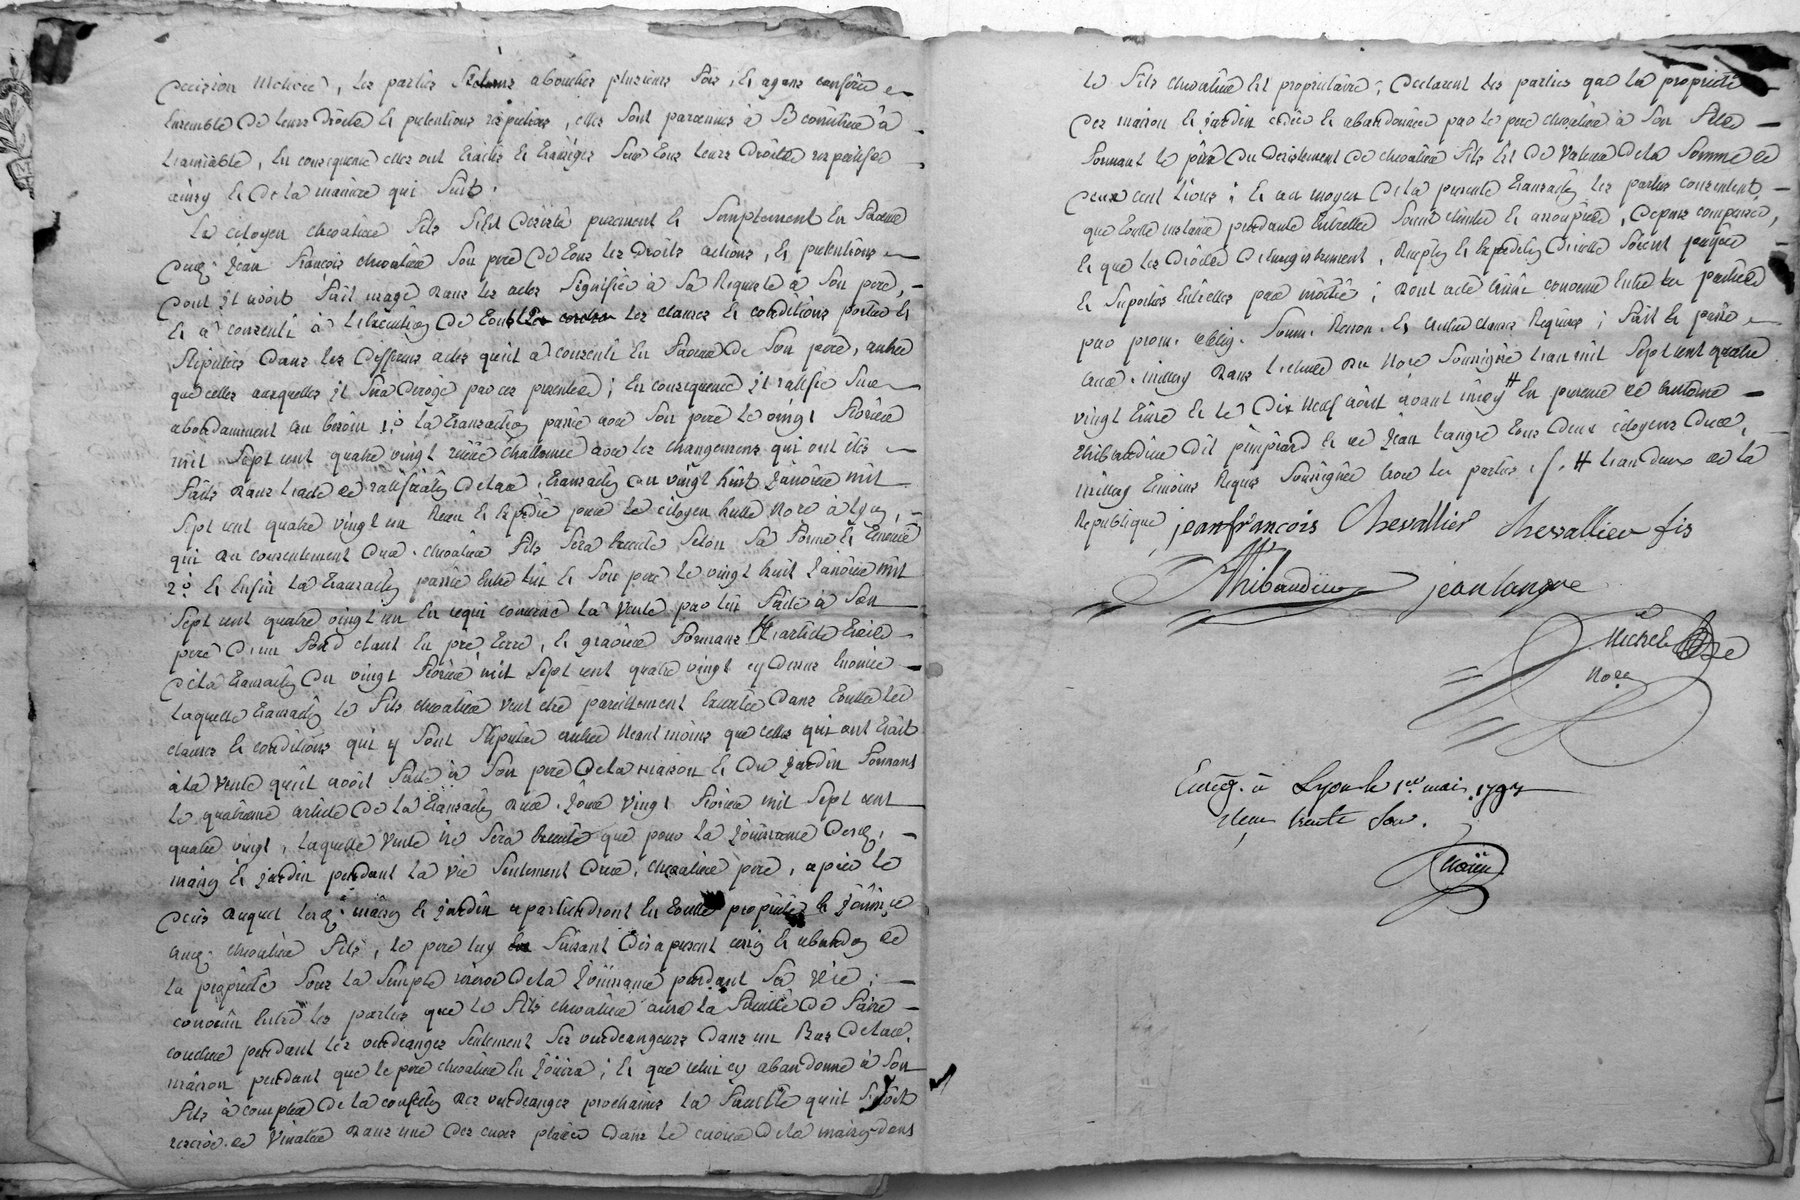 Decision mediée, les parties se sont abouchées plusieurs fois, et ayans conferée
Ensemble de leurs droits et pretentions respectives, elles sont parvenues à se concilier à
L'amiable, En consequence elles ont traités et transigés sur tous leurs droits respectifs
ainsy et de la maniere qui suit.
Le citoyen chevalier fils s'est désisté purement et simplement En faveur
dud. Jean François chevalier son pere de tous les droits actions, et pretentions
dont il avoit fait usage dans les actes signifiés à sa Requete à son pere,
et a consenti à L'Execution de tout les clauses et conditions portées et
stipulées dans les differens actes qu'il a consenti En faveur de son pere, autres
que celles auxquelles il sera derogé par ces presentes ; En consequence il ratifie sur
abondamment au besoin 1.° la transaction passée avec son pere le vingt fevrier
mil sept cent quatre vingt avec les changemens qui ont étés
faits dans l'acte de ratification de lad. transaction du vingt huit Janvier mil
sept cent quatre vingt un Reçu et Expedié par le citoyen hutte Nore à Lyon,
qui au consentement dud. chevalier fils sera Executée selon sa forme et teneur
2.° Et Enfin la transaction passée Entre lui et son pere le vingt huit Janvier mil
sept cent quatre vingt un En ce qui concerne la vente par lui faite à son
pere d'un fond etant En pré terre, et gravier formant l'article trois
de la transaction du vingt fevrier mil sept cent quatre vingt cy dessus Enoncée
laquelle transaction le fils chevalier veut etre pareillement Executée dans toutes les
clauses et conditions qui y sont stipulées autres neantmoins que celles qui ont trait
à la vente qu'il avoit faite à son pere de la maison et du Jardin formant
le quatrieme article de la transaction dud. Jour vingt fevrier mil sept cent
quatre vingt, laquelle vente ne sera Executée que pour la Jouissance desd.
maison et Jardin pendant la vie seulement dud. chevalier pere, après le
deces duquel lesd. maison et Jardin apartiendront En toutte propriété et Jouissance
aud. chevalier fils, le pere luy faisant dès apresent cession et abandon de
la propriété sous la simple réserve de la Jouissance pendant sa vie ;
convenu Entre les parties que le fils chevalier aura la faculté de faire
coucher pendant les vendeanges seulement ses vendeangeurs dans un Bas de lad.
maison pendant que le pere chevalier En Jouira ; Et que celui cy abandonne à son
fils à compter de la confection des vendeanges prochaines la faculté qu'il s'étoit
reservé de vinater dans une des cuves placées dans le cuvier de la maison dont
le fils chevalier Est proprietaire ; declarent les parties que la propriété
des maison et Jardin cedée et abandonnée par le pere chevalier à son fils
formant le prix du desistement de chevalier fils Est de valeur de la somme de
deux cent livres ; Et au moyen de la presente transaction les parties consentent
que toutte instance pendante Entr'elles soient éteintes et assoupies, depens compensés,
Et que les droits d'Enregistrement, Reception et Expedition d'icelle soient payés
et suportés Entr'elles par moitié ; dont acte ainsi convenu Entre les parties
par prom. oblig. soum. Renon. et autres clauses Requises ; fait et passé
aud. millery dans l'etude du Nore soussigné l'an mil sept cent quatre
vingt treize et le dix neuf aôut avant midy # En presence de antoine
thibaudier dit pimpiard et de Jean langre tous deux citoyens dud.
millery temoins Requis soussignés avec les parties. # l'an deux de la
Republique jeanfrançois Chevallier Chevallier fis
Thibaudier jean langre
Michel
Nore
Enreg. à Lyon le 1er mai 1797
Reçu trente sou.